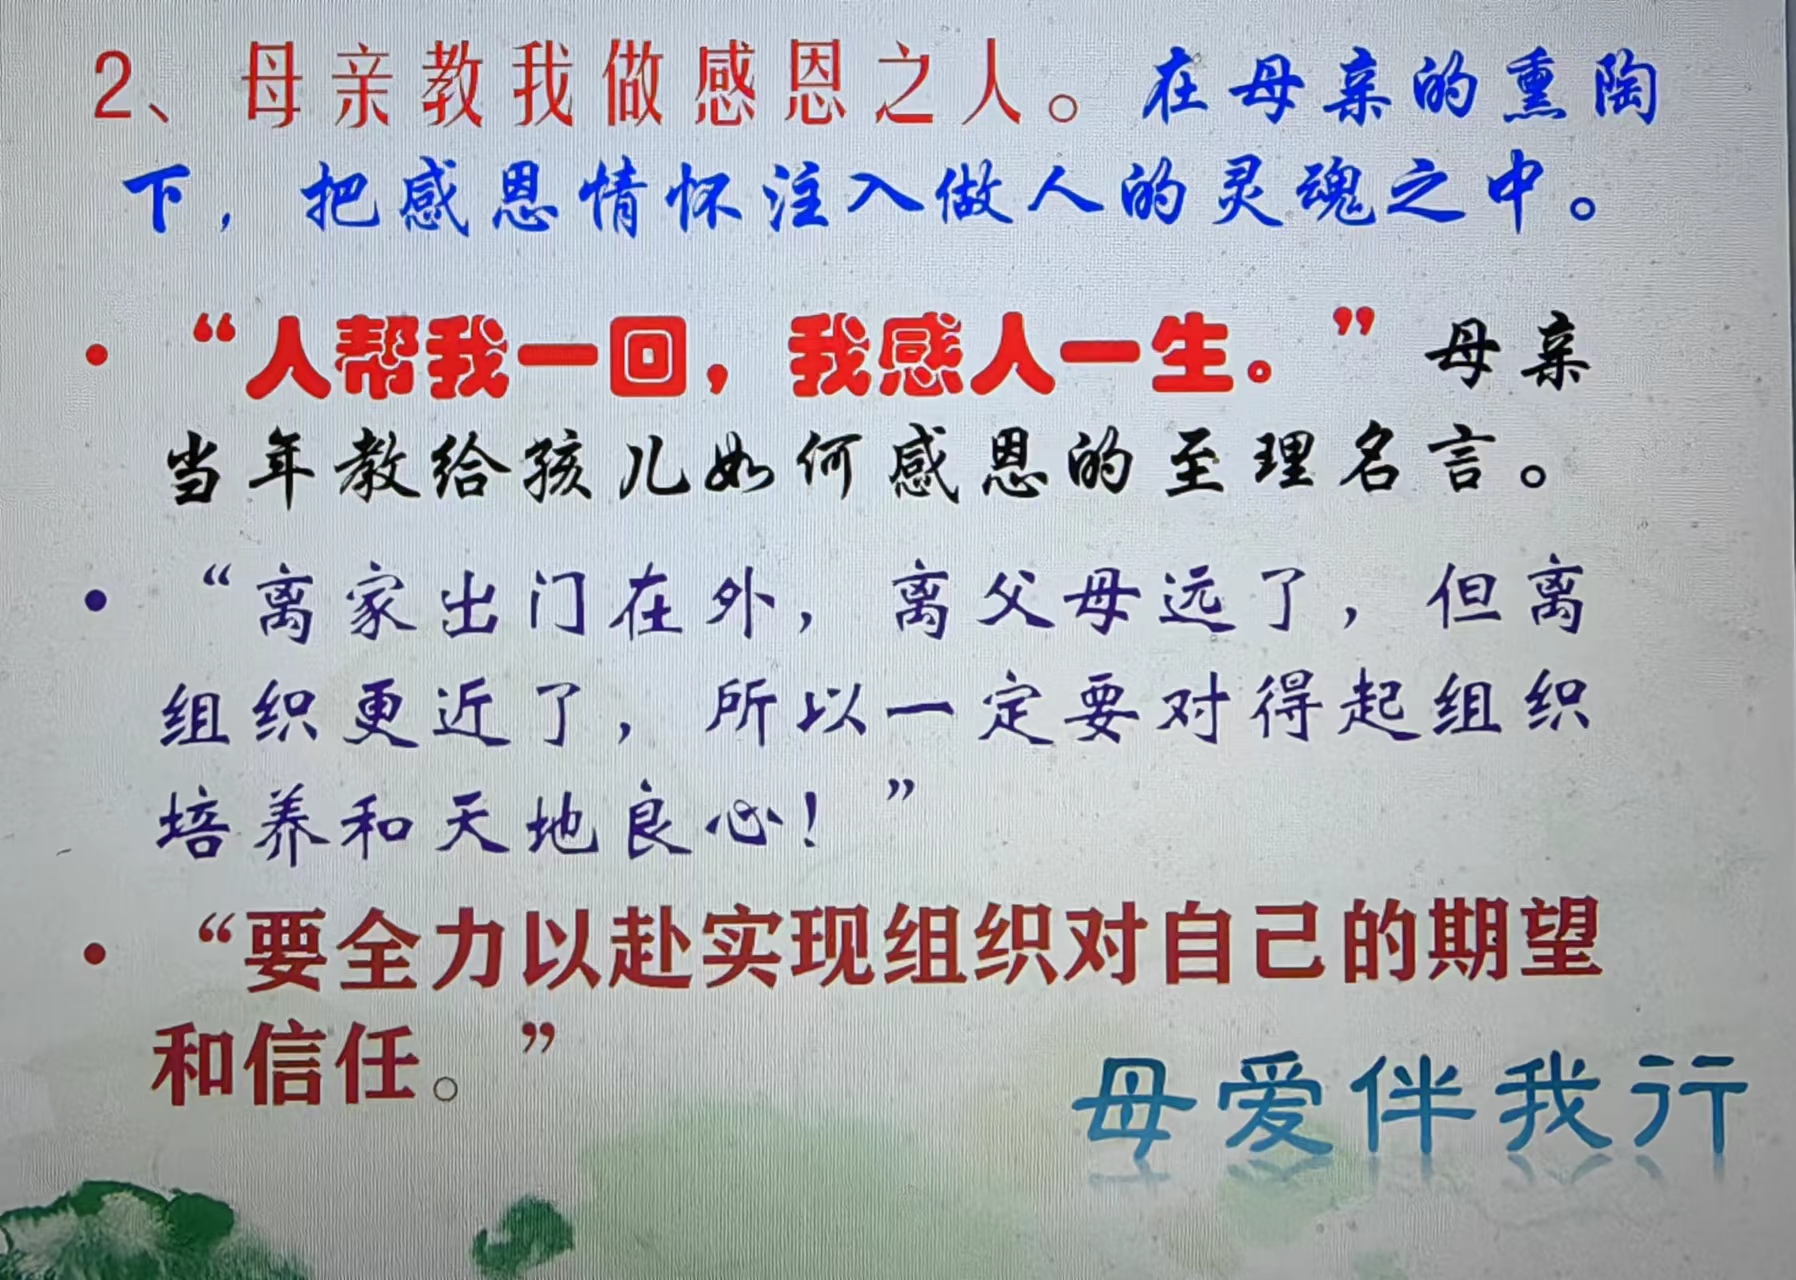 2、母亲教我做感恩之人。在母亲的熏陶
下，把感恩情怀注入做人的灵魂之中。
• “人帮我一回，我感人一生。”母亲
当年教给孩儿如何感恩的至理名言。
• “离家出门在外，离父母远了，但离
组织更近了，所以一定要对得起组织
培养和天地良心！”
• “要全力以赴实现组织对自己的期望
和信任。”
母爱伴我行